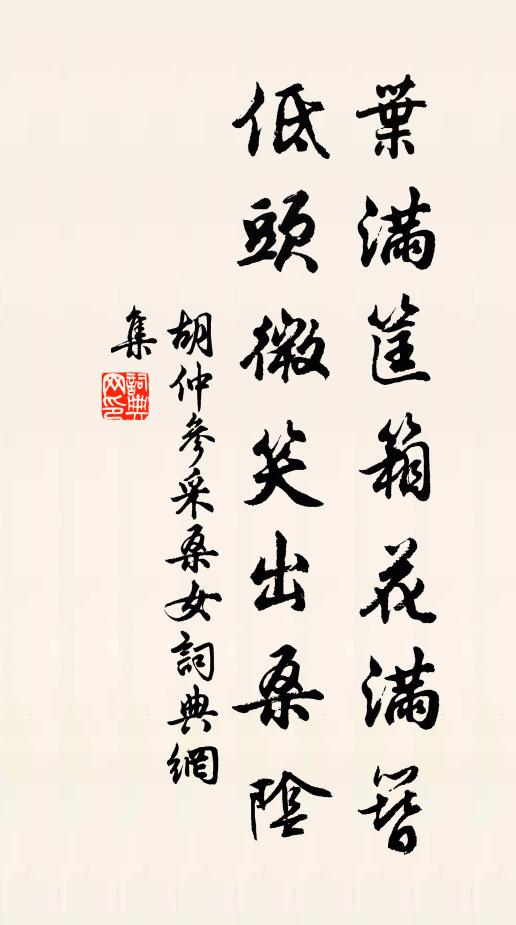 葉滿筐箱花滿簪
低頭微笑出桑陰
胡仲參采桑女詞典網
集
詞典網印